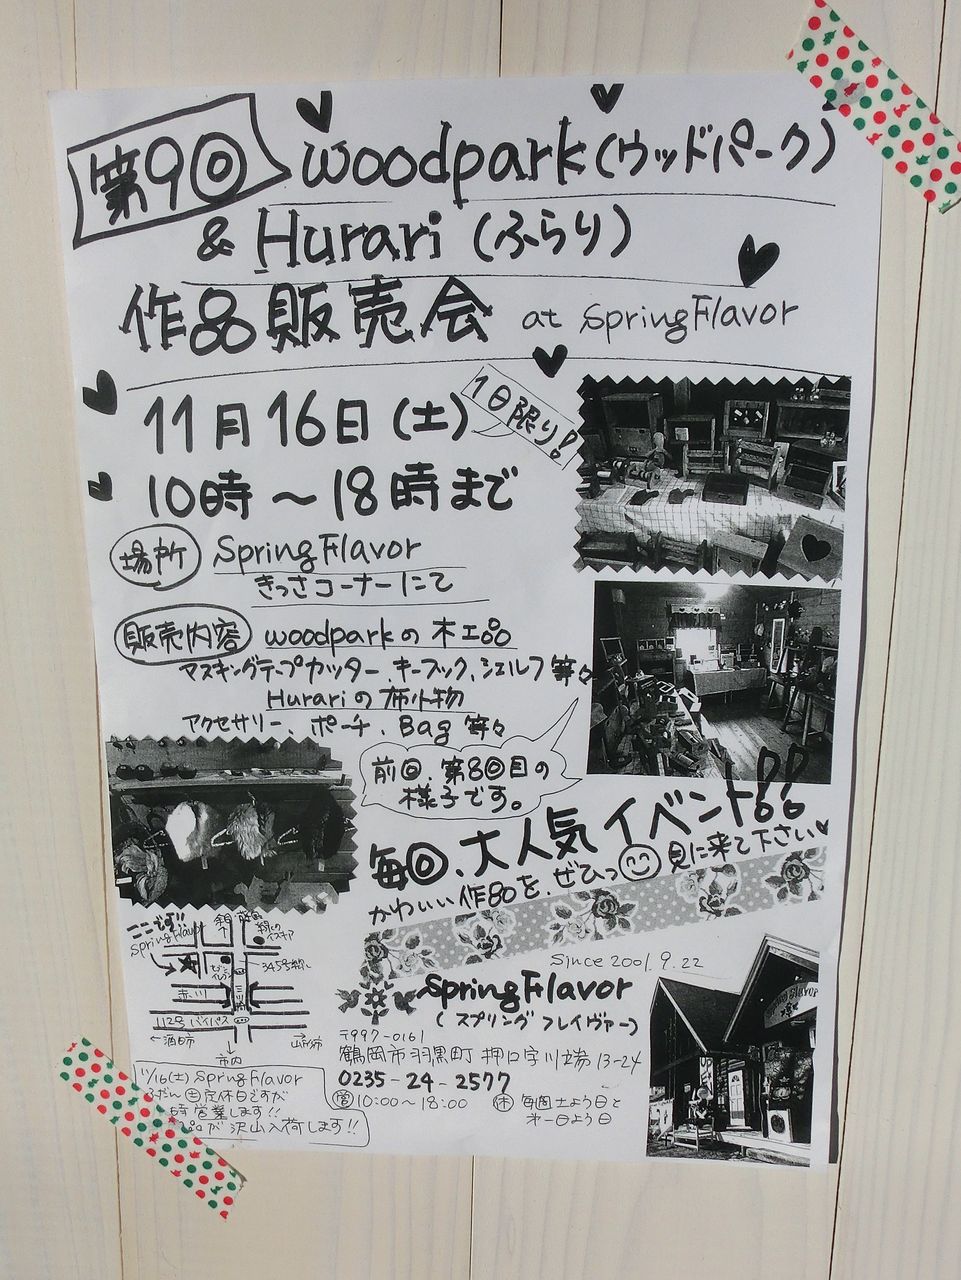 第9回 woodpark(ウッドパーク)
& Hurari (ふらり)
作品販売会 at SpringFlavor
11月16日(土) 1日限り!
10時〜18時まで
場所 SpringFlavor
きっさコーナーにて
販売内容 woodparkの木工品
マスキングテープカッター、キーフック、シェルフ等々
Hurariの布小物
アクセサリー、ポーチ、Bag 等々
前回、第8回目の
様子です。
毎回、大人気イベント!!
かわいい作品を、ぜひっ 見に来て下さい♥
ここです!!
SpringFlavor
セブンイレブン
345号線
赤川
三川橋
112号バイパス
←酒田市
→山形市
市内
Since 2001.9.22
SpringFlavor
(スプリングフレイヴァー)
〒997-0161
鶴岡市羽黒町押口字川端13-24
0235-24-2577
営 10:00〜18:00 休 毎週土よう日と
第一日よう日
11/16(土) SpringFlavor
ふだん土定休日ですが
時営業します!!
が沢山入荷します!!
Spring Flavor